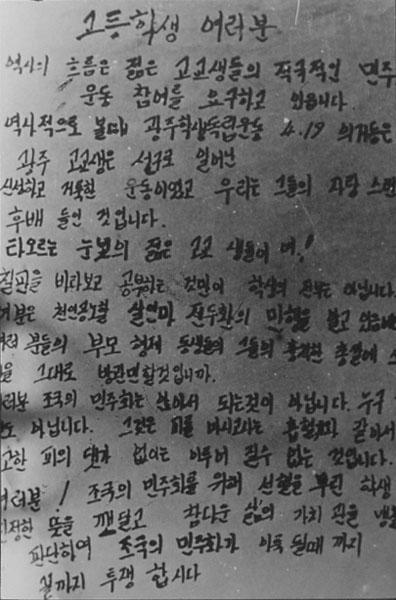 고등학생 여러분
역사의 흐름은 젊은 고교생들의 적극적인 민주
운동 참여를 요구하고 있읍니다.
역사적으로 볼때 광주학생독립운동 4.19 의거등은
광주 고교생은 선구로 일어난
신성하고 거룩한 운동이였고 우리는 그들의 자랑 스런
후배 들인 것입니다.
타오르는 눈빛의 젊은 고교 생들이 여!
칠판을 바라보고 공부하는 것만이 학생의 전부는 아닙니다.
천인공노할 살인마 전두환의 만행을 보고
분들의 부모 형제 동생들이 그들의 총칼에
그대로 방관만할것입니까.
여러분 조국의 민주화는 앉아서 되는것이 아닙니다. 누구
도 아닙니다. 그것은 피를 마시고사는 흡혈귀와 같아서
고한 피의 댓가 없이는 이루어 질수 없는 것입니다.
여러분! 조국의 민주화를 위해 선혈을 뿌린 학생
진정한 뜻을 깨달고 참다운 삶의 가치 관을
판단하여 조국의 민주화가 이룩 될때 까지
끝까지 투쟁 합시다